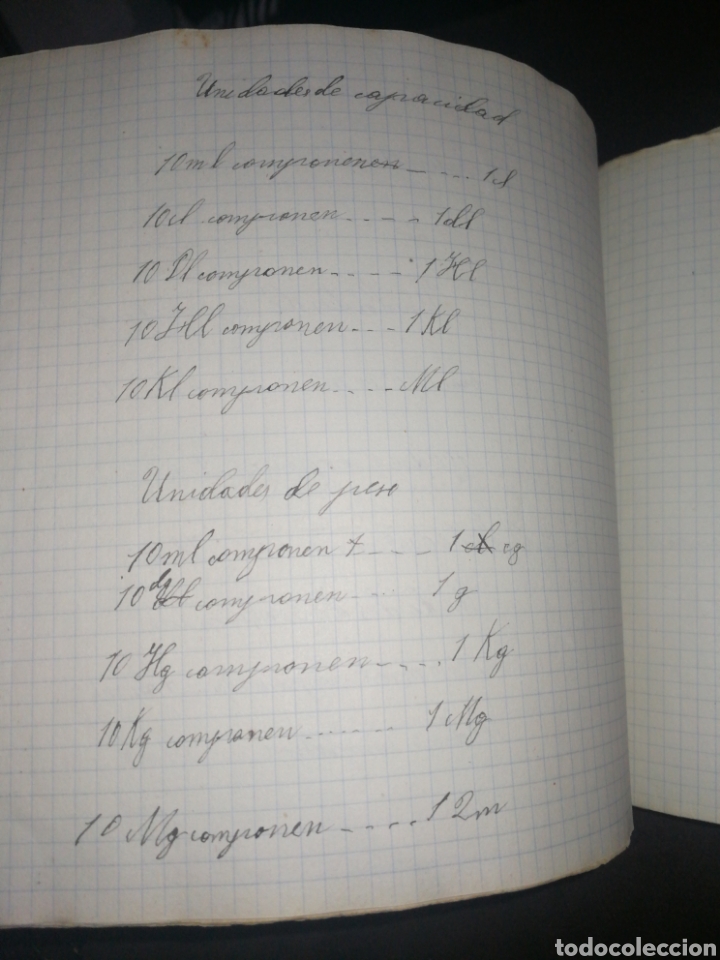 Unidades de capacidad
10 ml componenen ---- 1 cl
10 cl componen ---- 1 dl
10 Dl componen ---- 1 Hl
10 Hl componen --- 1 Kl
10 Kl componen ---- Ml
Unidades de peso
10 ml componen --- 1 cl cg
10 dg componen --- 1 g
10 Hg componen ---- 1 Kg
10 Kg componen ...... 1 Mg
10 Mg componen ---- 1 2m
todocoleccion